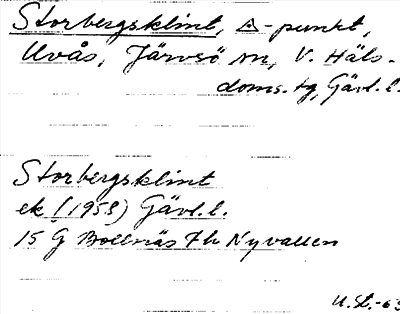 Storbergsklint, △-punkt,
Uvås, Järvsö sn, V. Häls.
doms. tg, Gävl. l.
Storbergsklint
ek (1958) Gävl. l.
15 G Bollnäs 7h Nyvallen
U. St. -63